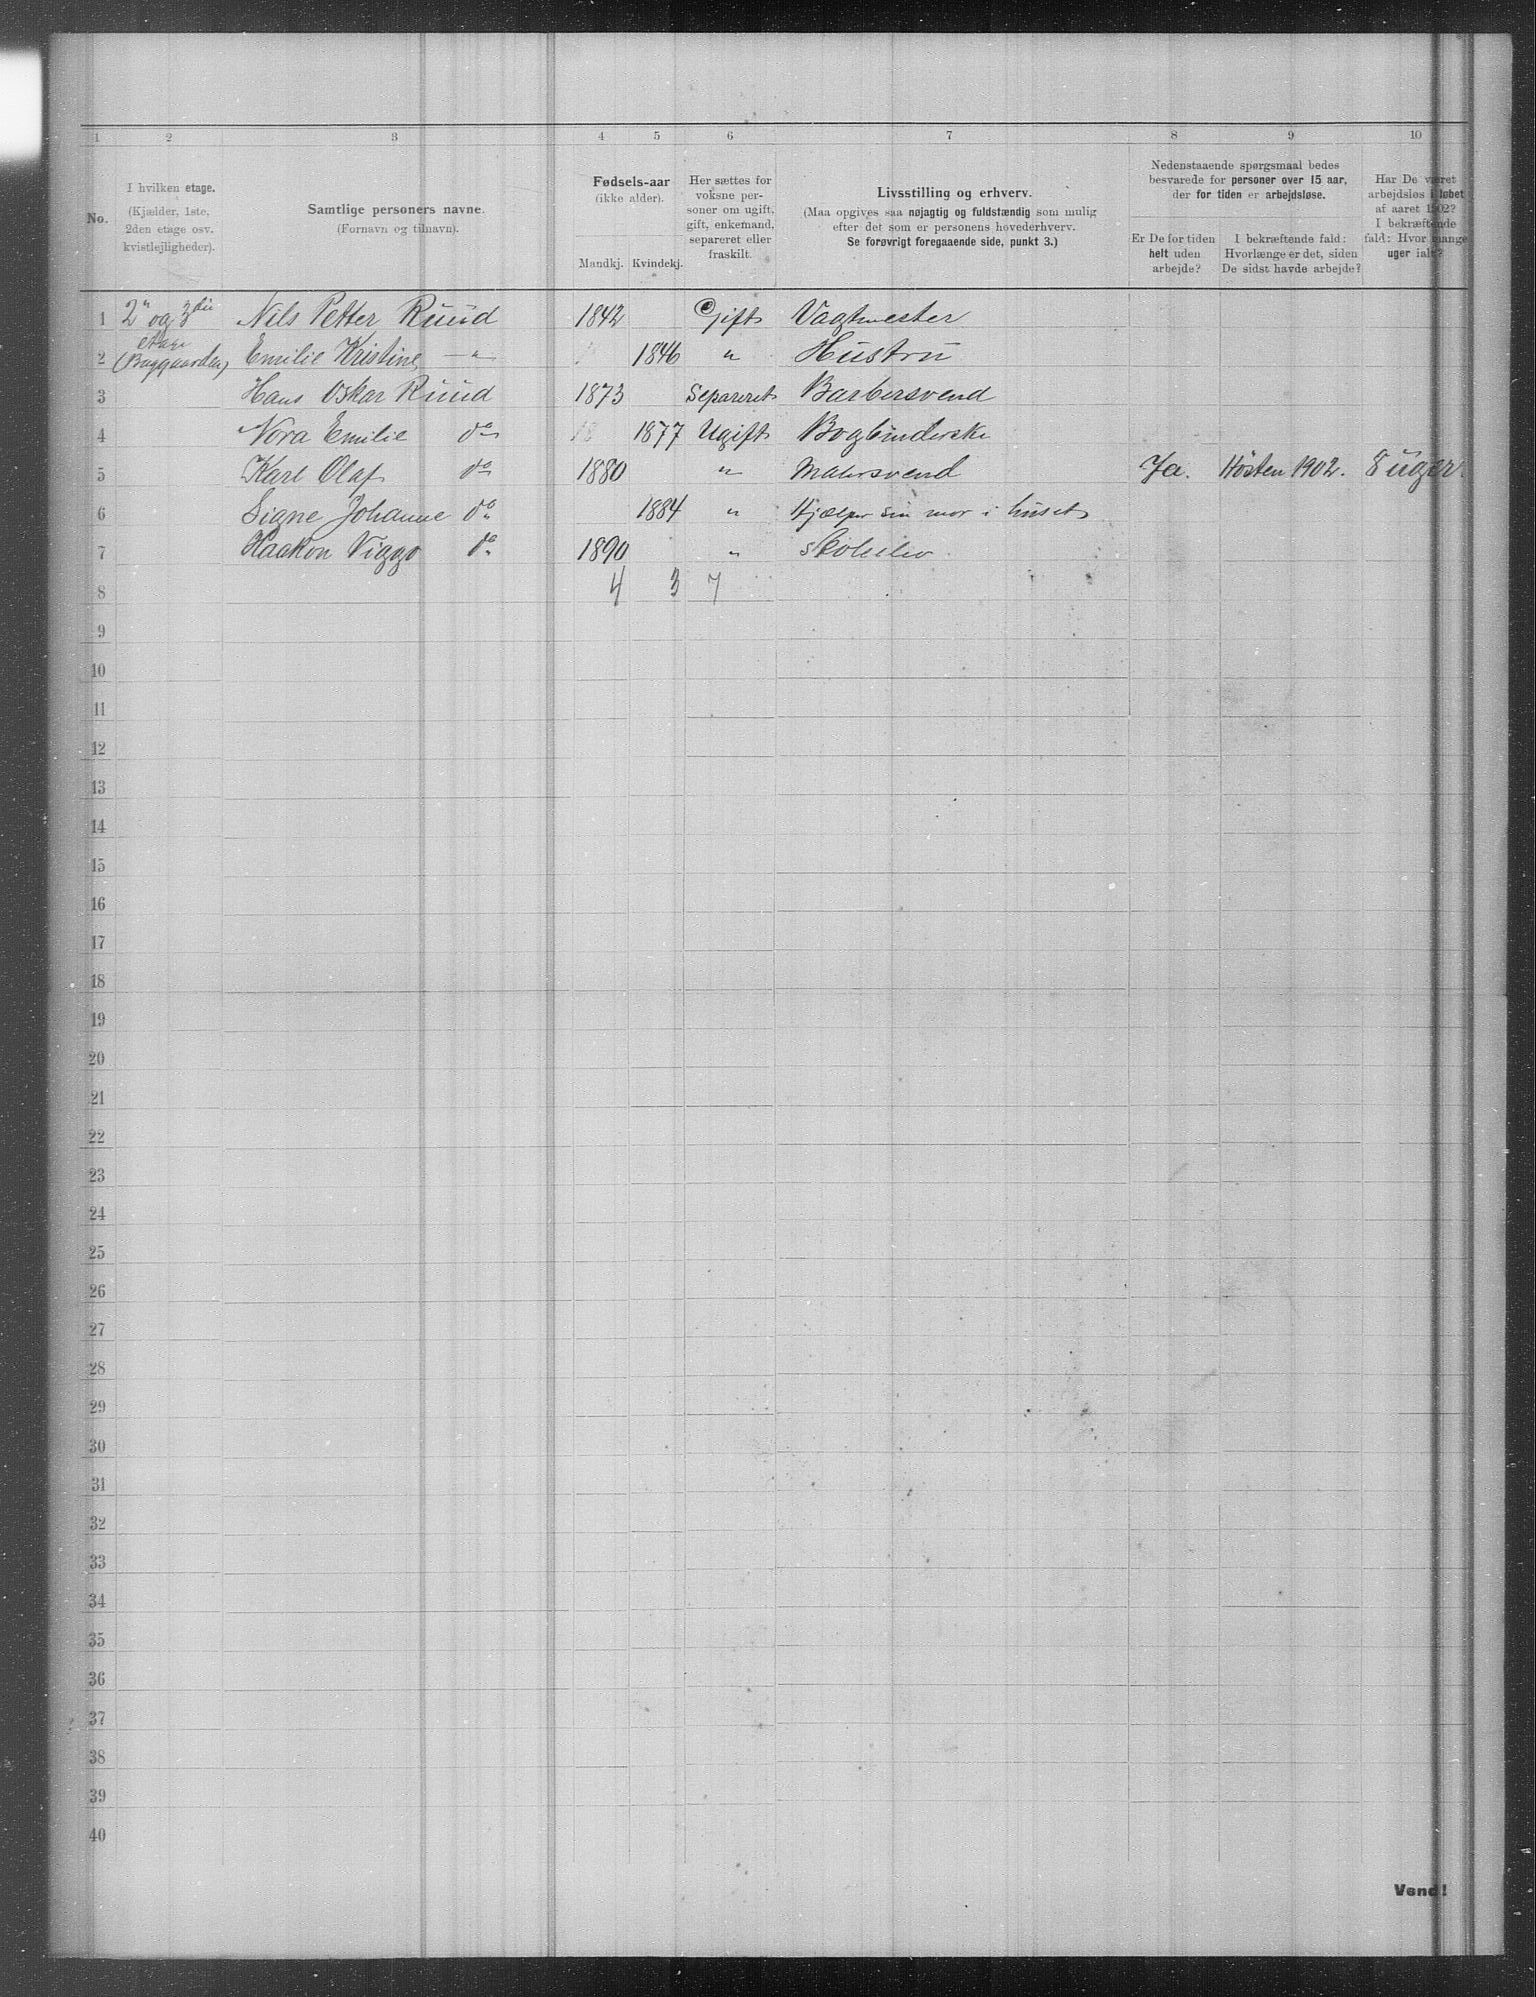 1 2 3 4 5 6 7 8 9 10
No.
I hvilken etage.
(Kjælder, 1ste,
2den etage osv.
kvistlejligheder).
Samtlige personers navne.
(Fornavn og tilnavn).
Fødsels-aar
(ikke alder).
Mandkj. Kvindekj.
Her sættes for
voksne per-
soner om ugift,
gift, enkemand,
separeret eller
fraskilt.
Livsstilling og erhverv.
(Maa opgives saa nøjagtig og fuldstændig som mulig
efter det som er personens hovederhverv.
Se forøvrigt foregaaende side, punkt 3.)
Nedenstaaende spørgsmaal bedes
besvarede for personer over 15 aar,
der for tiden er arbejdsløse.
Er De for tiden
helt uden
arbejde?
I bekræftende fald:
Hvorlænge er det, siden
De sidst havde arbejde?
Har De været
arbejdsløs i løbet
af aaret 1902?
I bekræftende
fald: Hvor mange
uger ialt?
1 2n og 3die Nils Petter Ruud 1842 Gift Vagtmester
etage
2 (Baggaarden) Emilie Kristine —"— 1846 " Hustru
3 Hans Oskar Ruud 1873 Separeret Barbersvend
4 Nora Emilie do 18 1877 Ugift Bogbinderske
5 Karl Olaf do 1880 " Malersvend Ja. Høsten 1902. 8 uger.
6 Signe Johanne do 1884 " Hjælper sin mor i huset
7 Haakon Viggo do 1890 " Skoleelev
8 4 3 7
9
10
11
12
13
14
15
16
17
18
19
20
21
22
23
24
25
26
27
28
29
30
31
32
33
34
35
36
37
38
39
40
Vend!